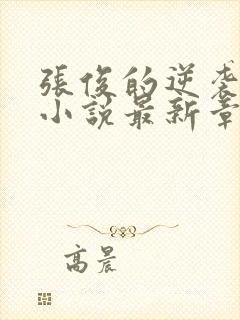 張俊的逆袭
小說最新章
高晨